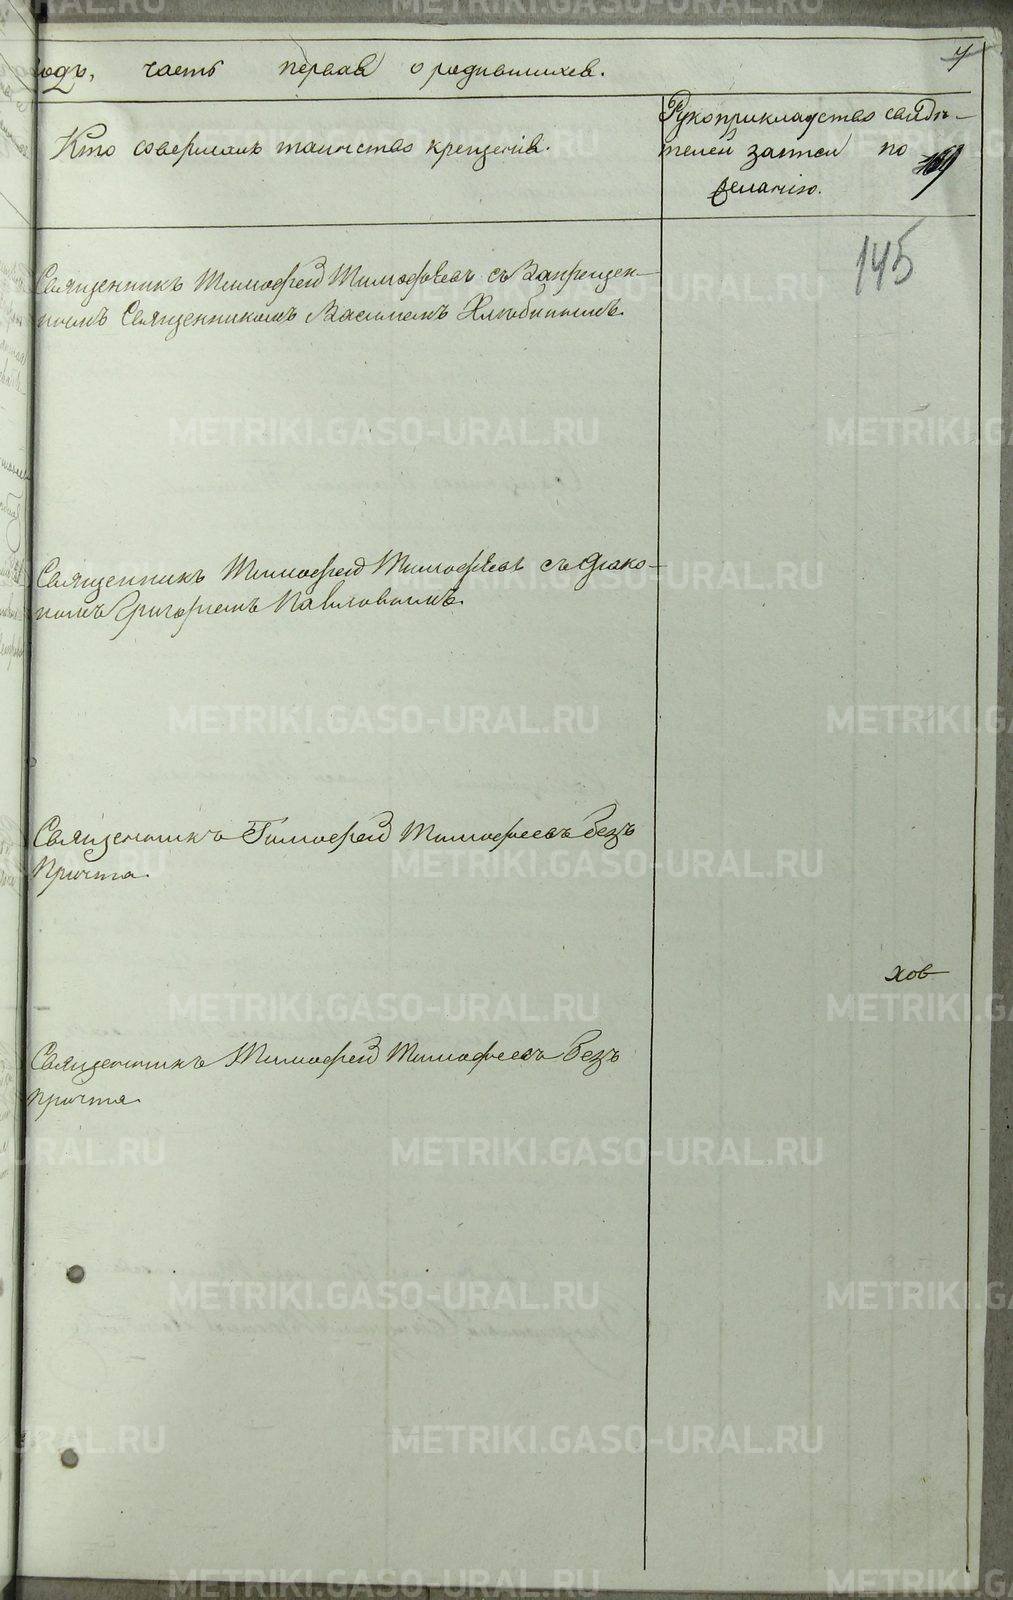 годъ, часть первая о родившихся. 7
Кто совершалъ таинство крещенія.
Рукоприкладство свидѣ-
телей записи по
желанію.
145
Священникъ Тимофей Тимофѣевъ съ Запрещен-
нымъ Священникомъ Василіемъ Хлѣбинымъ.
Священникъ Тимофей Тимофѣевъ съ Діако-
номъ Григоріемъ Павловымъ.
Священникъ Тимофей Тимофеевъ безъ
причта.
хов
Священникъ Тимофей Тимофеевъ безъ
причта.
METRIKI.GASO-URAL.RU